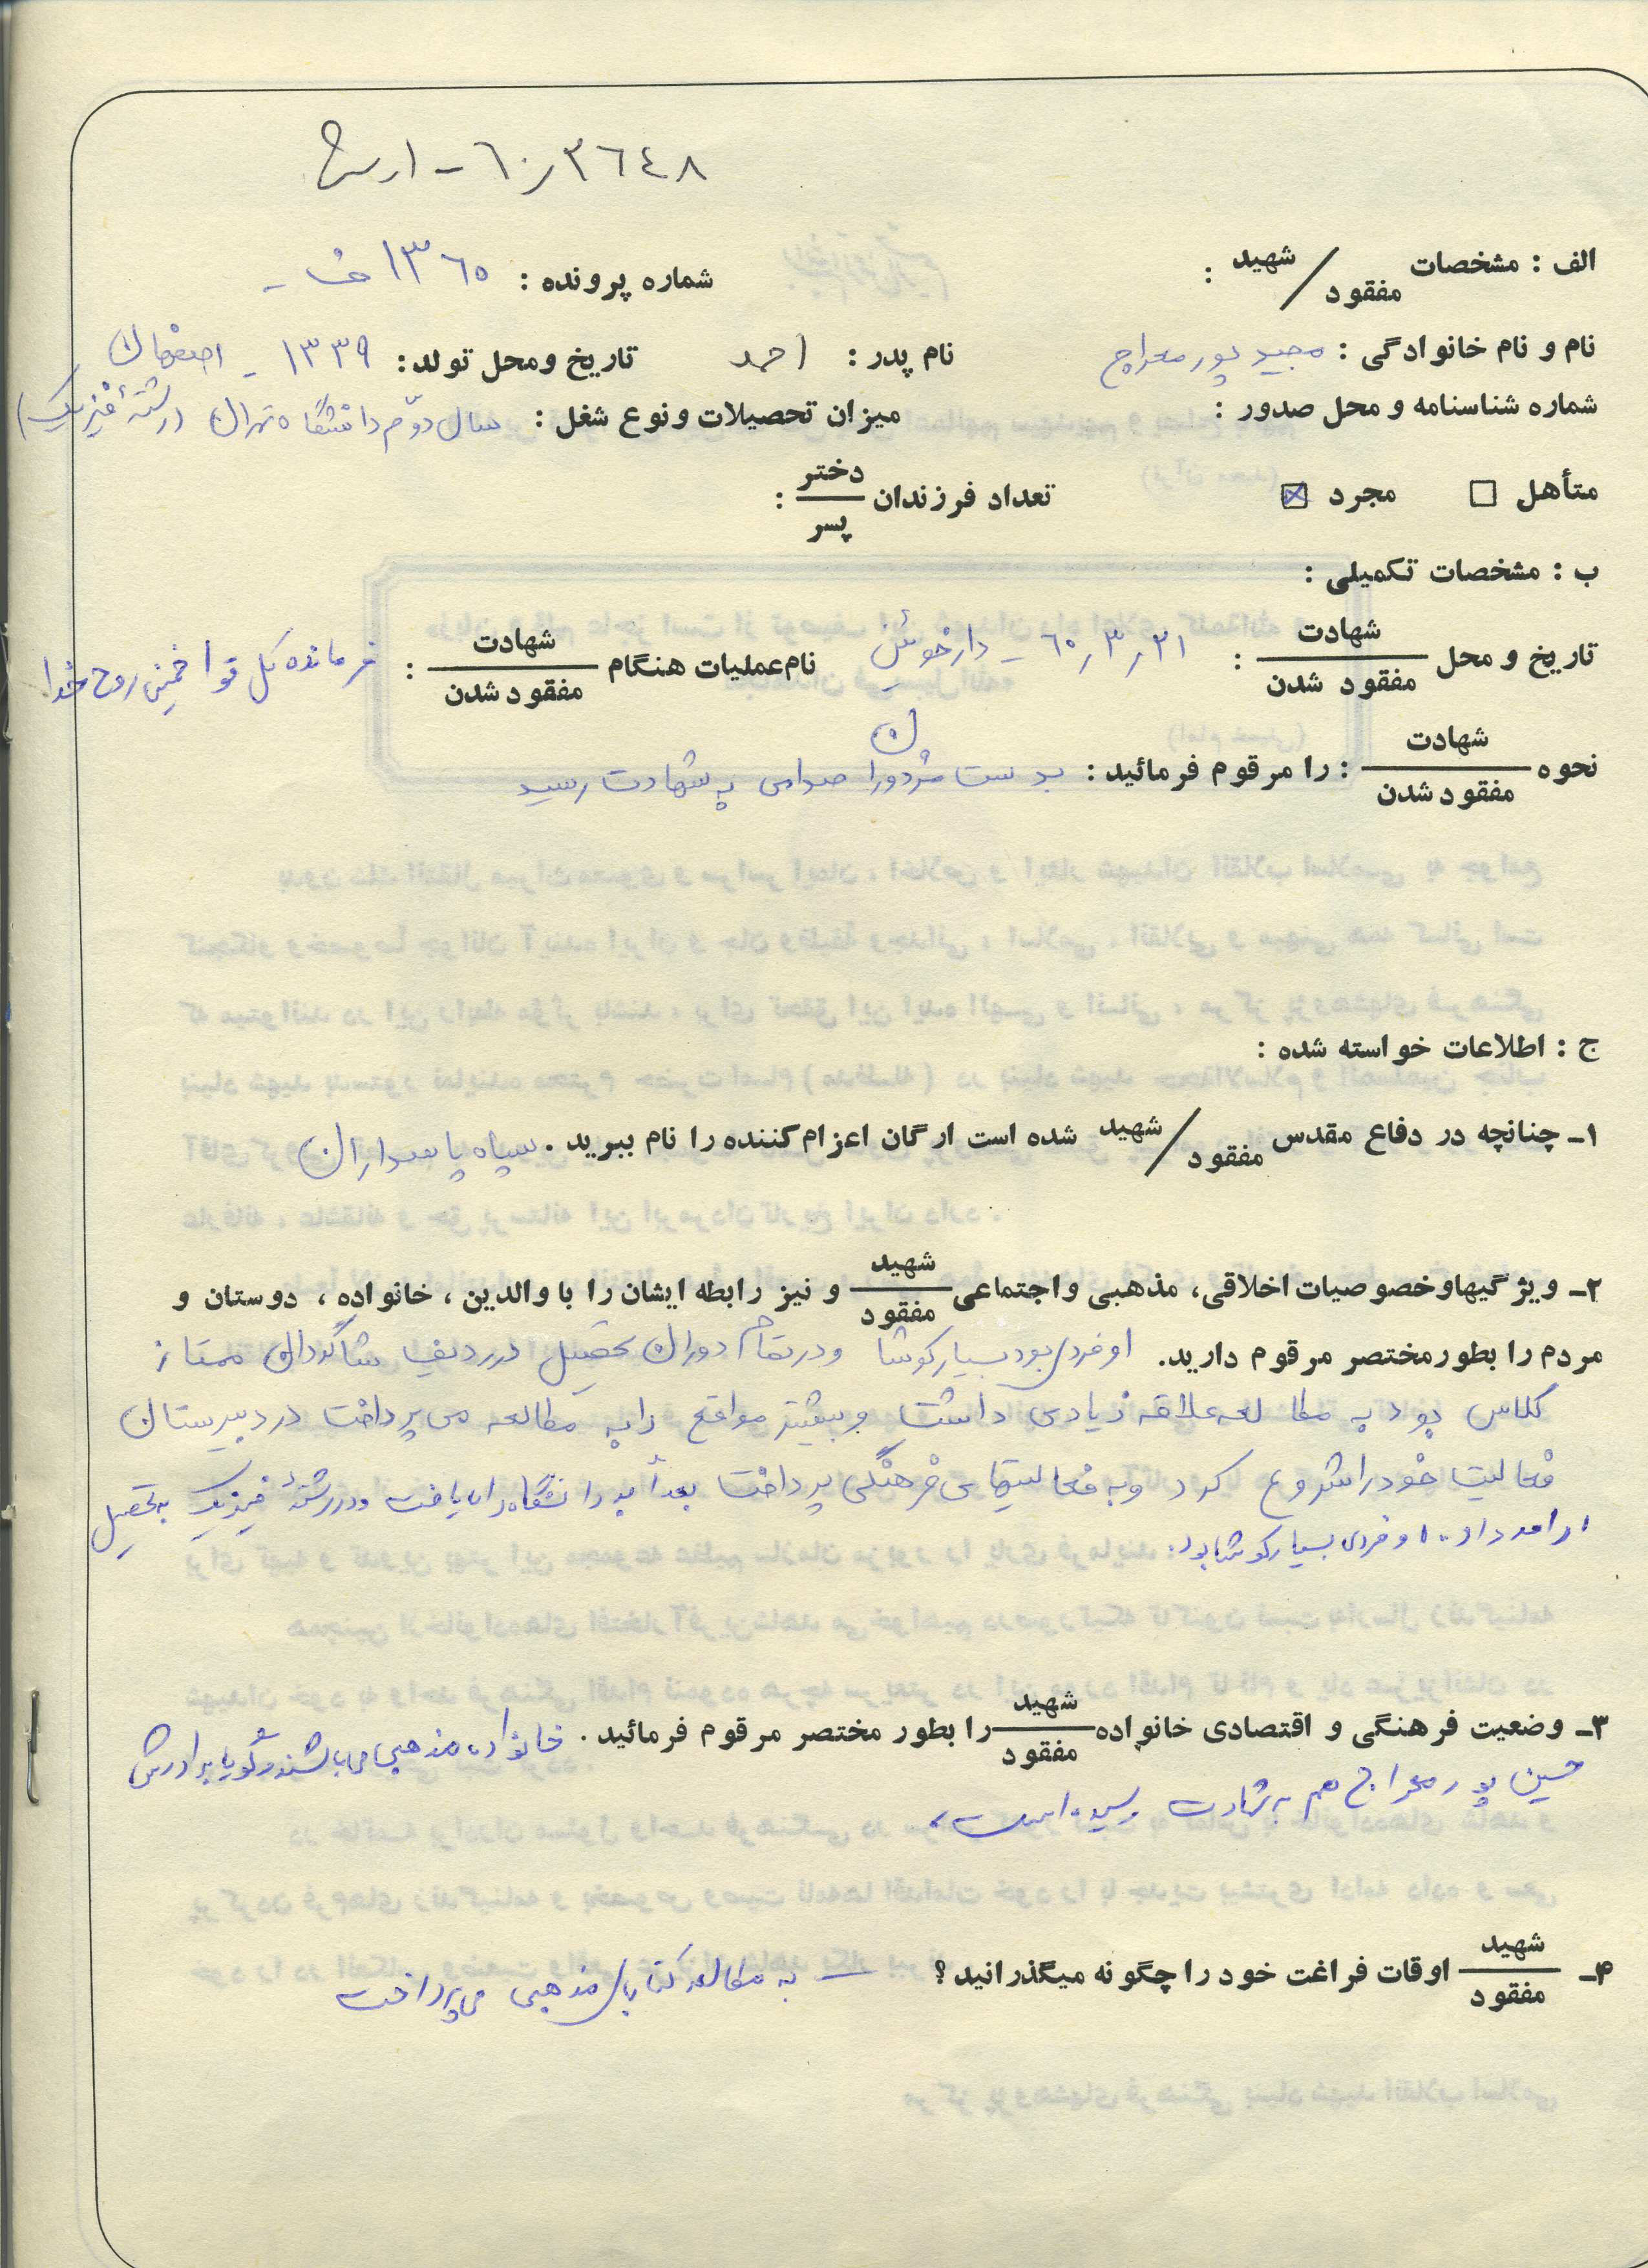 ٦٠/٣٦٤٨ - ا
الف : مشخصات شهید / مفقود :
شماره پرونده : ١٣٦٥
نام و نام خانوادگی : مجید پور معراج نام پدر : احمد تاریخ ومحل تولد : ١٣٣٩ - اصفهان
شماره شناسنامه و محل صدور : میزان تحصیلات ونوع شغل : سال دوّم دانشگاه تهران (رشتهٔ فیزیک)
متأهل □ مجرد ☒ تعداد فرزندان دختر / پسر :
ب : مشخصات تکمیلی :
تاریخ و محل شهادت / مفقود شدن : ٦٠/٣/٢١ - دارخوئین نام عملیات هنگام شهادت / مفقود شدن : فرمانده کل قوا خمینی روح خدا
نحوه شهادت / مفقود شدن : را مرقوم فرمائید : بدست مزدوران صدامی به شهادت رسید
ج : اطلاعات خواسته شده :
١ـ چنانچه در دفاع مقدس شهید / مفقود شده است ارگان اعزام کننده را نام ببرید . سپاه پاسداران
٢ـ ویژگیها و خصوصیات اخلاقی، مذهبی واجتماعی شهید / مفقود و نیز رابطه ایشان را با والدین ، خانواده ، دوستان و
مردم را بطور مختصر مرقوم دارید. او فردی بود بسیار کوشا و در تمام دوران تحصیل در ردیف شاگردان ممتاز
کلاس بود به مطالعه علاقه زیادی داشت و بیشتر مواقع را به مطالعه می پرداخت در دبیرستان
فعالیت خود را شروع کرد و به فعالیتهای فرهنگی پرداخت بعداً به دانشگاه راه یافت و در رشتهٔ فیزیک به تحصیل
ادامه داد .. او فردی بسیار کوشا بود.
٣ـ وضعیت فرهنگی و اقتصادی خانواده شهید / مفقود را بطور مختصر مرقوم فرمائید . خانواده مذهبی می باشند و گویا برادرش
حسین پور معراج هم به شهادت رسیده است .
٤ـ شهید / مفقود اوقات فراغت خود را چگونه میگذرانید ؟ — به مطالعه کتابهای مذهبی می پرداخت